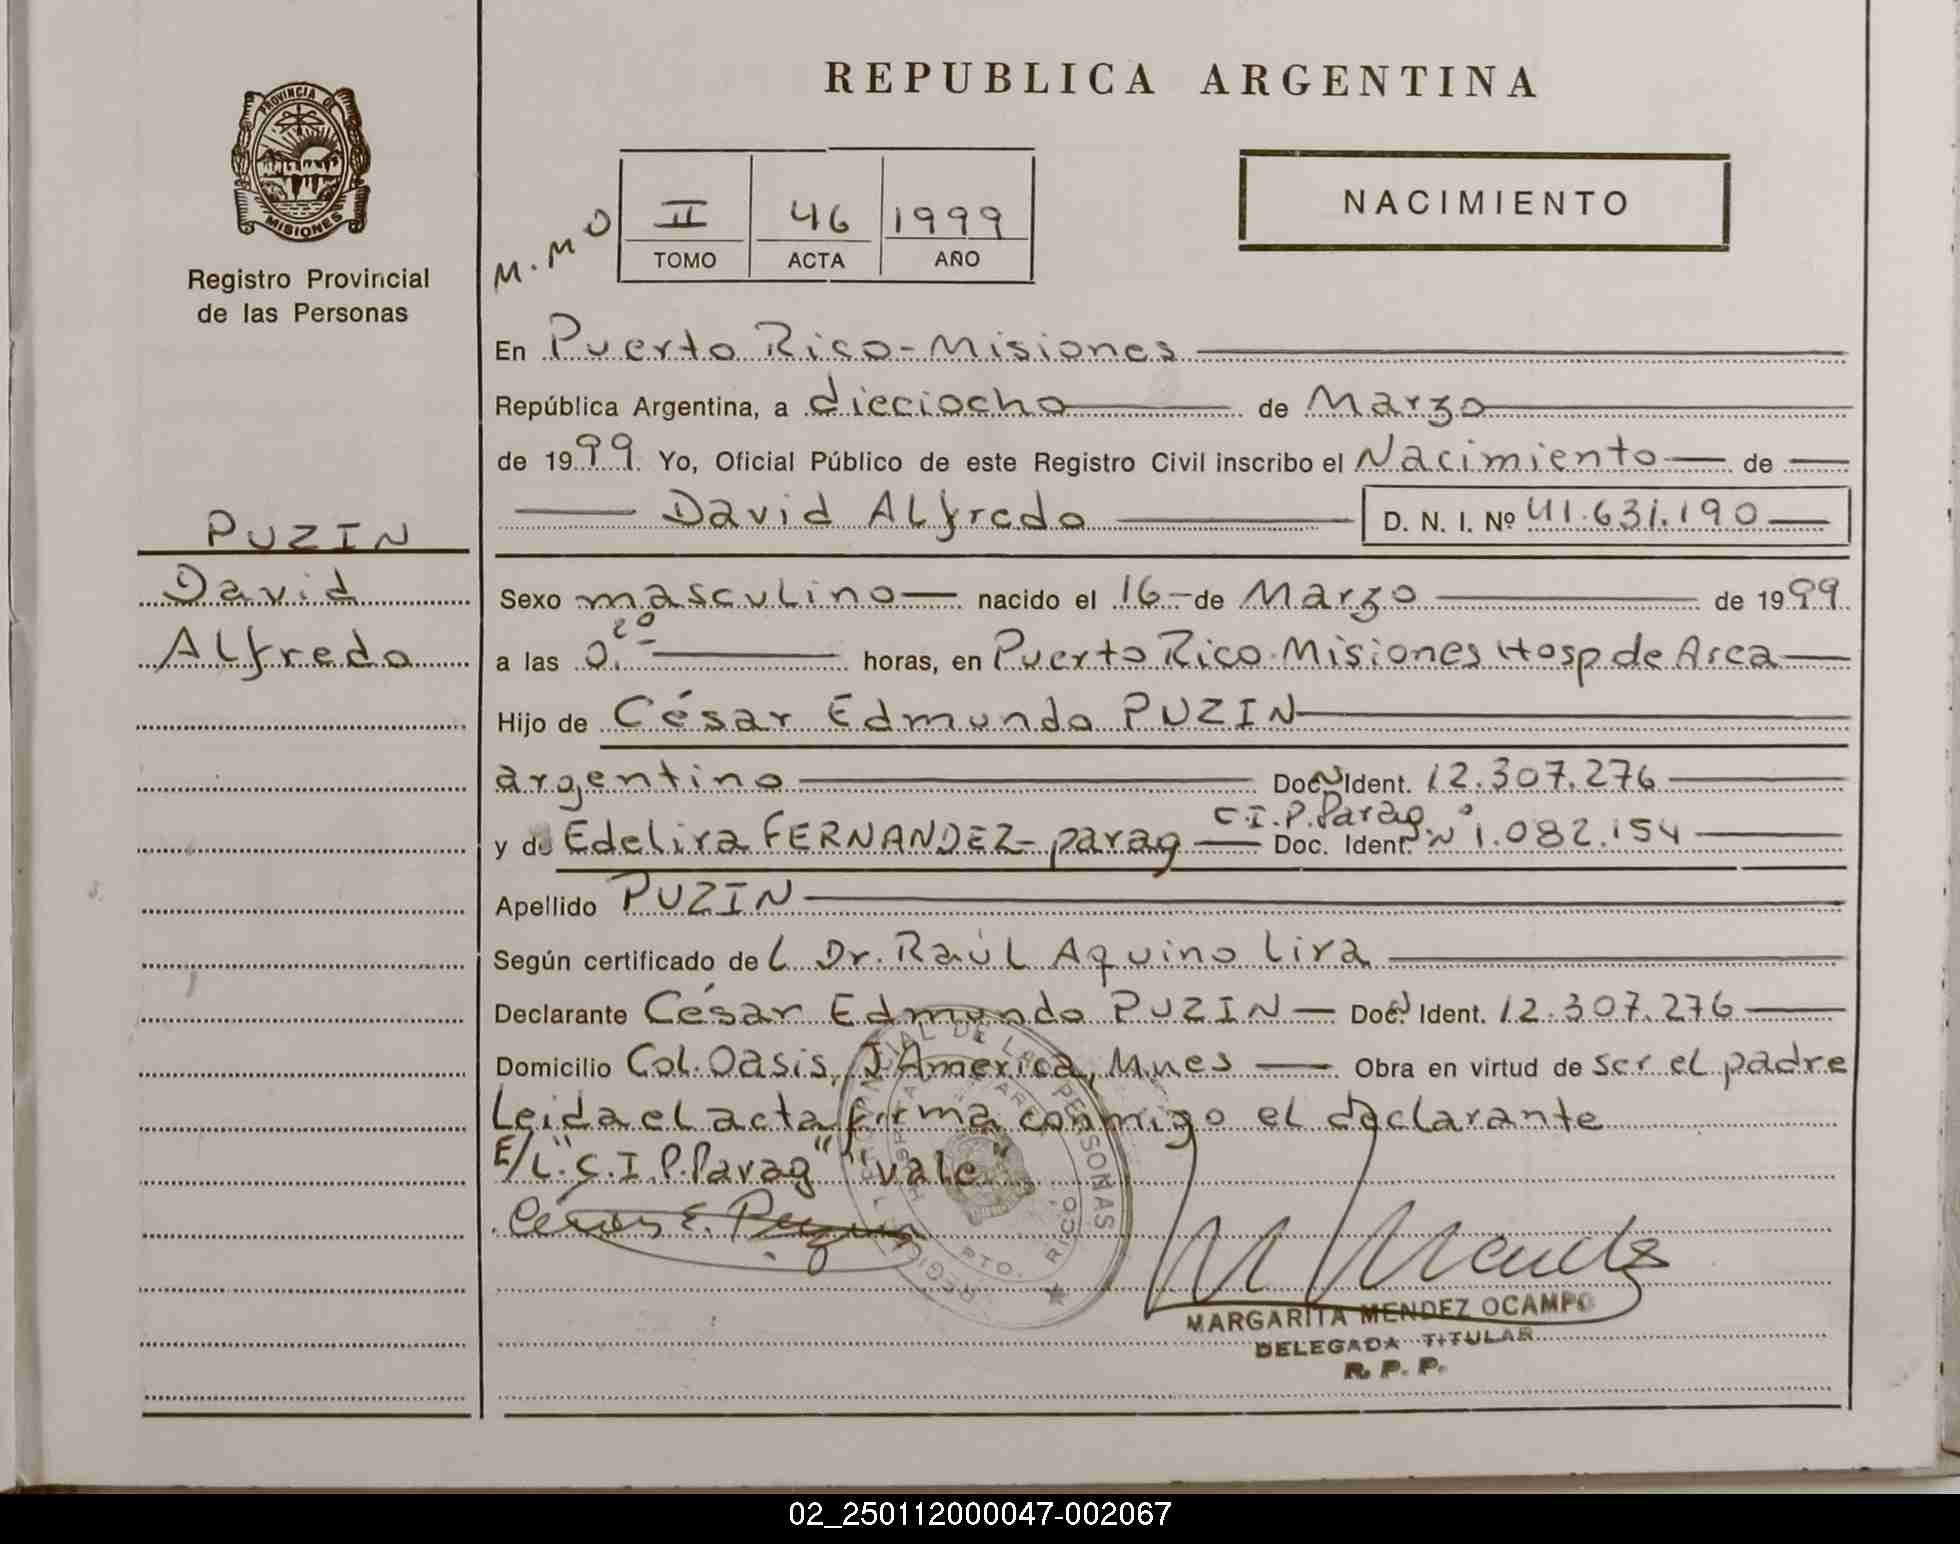 REPUBLICA ARGENTINA
PROVINCIA DE
MISIONES
Registro Provincial
de las Personas
M.MO
II 46 1999
TOMO ACTA AÑO
NACIMIENTO
En Puerto Rico-Misiones
República Argentina, a dieciocho de Marzo
de 1999. Yo, Oficial Público de este Registro Civil inscribo el Nacimiento de
David Alfredo D. N. I. Nº 41.631.190
PUZIN
David
Alfredo
Sexo masculino nacido el 16 de Marzo de 1999
a las 0.20 horas, en Puerto Rico Misiones Hosp de Area
Hijo de César Edmundo PUZIN
argentino Doc N Ident. 12.307.276
y de Edelira FERNANDEZ- parag C.I.P.Parag Doc. Ident. Nº 1.082.154
Apellido PUZIN
Según certificado del Dr. Raúl Aquino Lira
Declarante César Edmundo PUZIN Doc. Ident. 12.307.276
Domicilio Col. Oasis, J América, Mnes Obra en virtud de ser el padre
Leida el acta firma conmigo el declarante
E/L "C.I.P.Parag" "vale"
César E. Puzin
PERSONAS
PTO. RICO
M Mendez
MARGARITA MENDEZ OCAMPO
DELEGADA TITULAR
R. P. P.
02_250112000047-002067